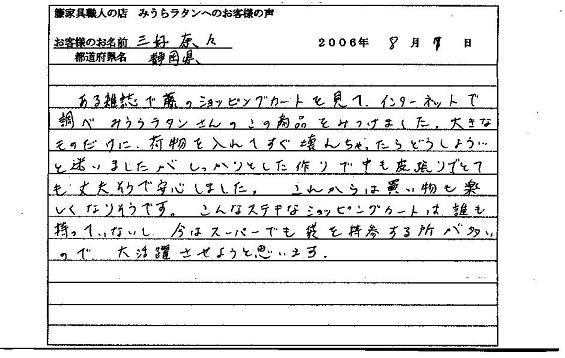 籐家具職人の店　みうらラタンへのお客様の声
お客様のお名前　三好 奈々　2006年 8月 7日
都道府県名　静岡県
ある雑誌で籐のショッピングカートを見て、インターネットで
調べみうらラタンさんのこの商品をみつけました。大きな
ものだけに、荷物を入れてすぐ壊れちゃったらどうしよう…
と迷いましたが しっかりとした作りで中も皮張りでとて
も丈夫そうで安心しました。 これからは買い物も楽
しくなりそうです。 こんなステキなショッピングカートは誰も
持っていないし 今はスーパーでも袋を持参する所が多い
ので 大活躍させようと思います。